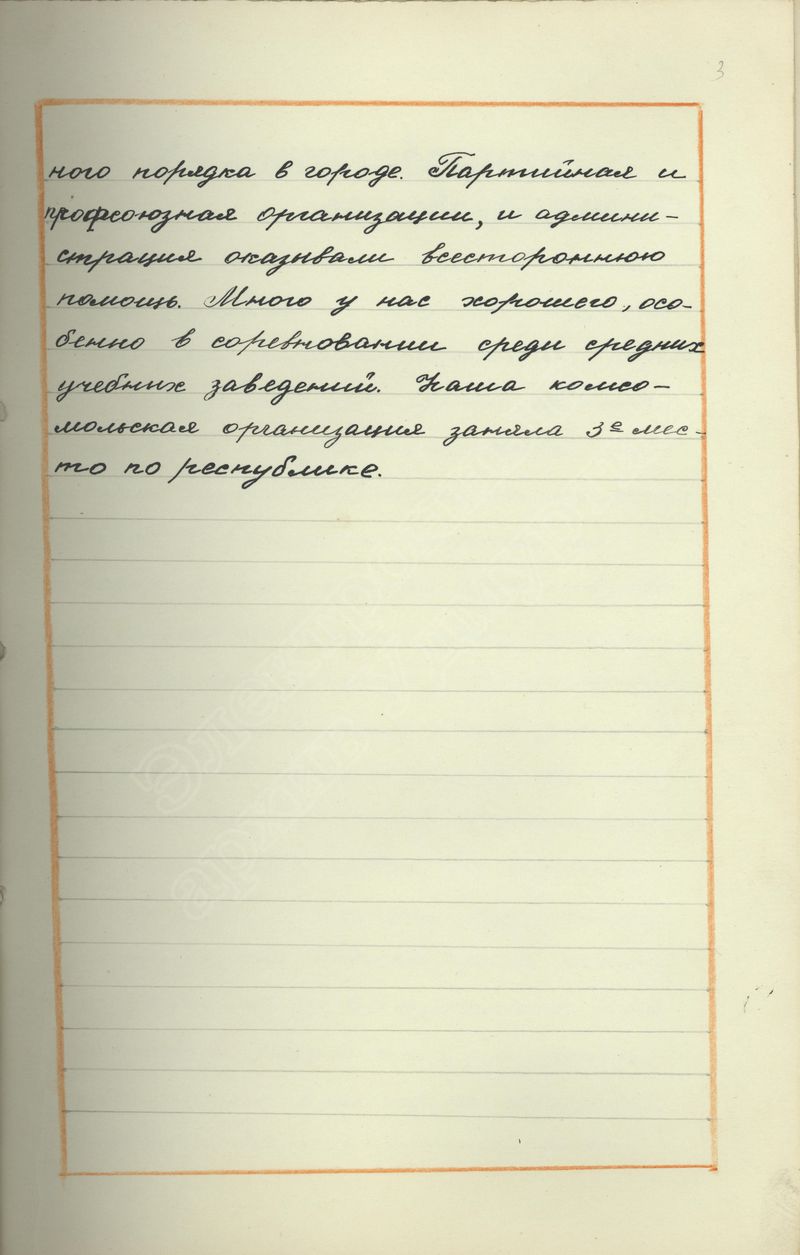 3
ного порядка в городе. Партийная и
профсоюзная организации, и админи-
страция оказывали всестороннюю
помощь. Много у нас хорошего, осо-
бенно в соревновании среди средних
учебных заведений. Наша комсо-
мольская организация заняла 3е мес-
то по республике.